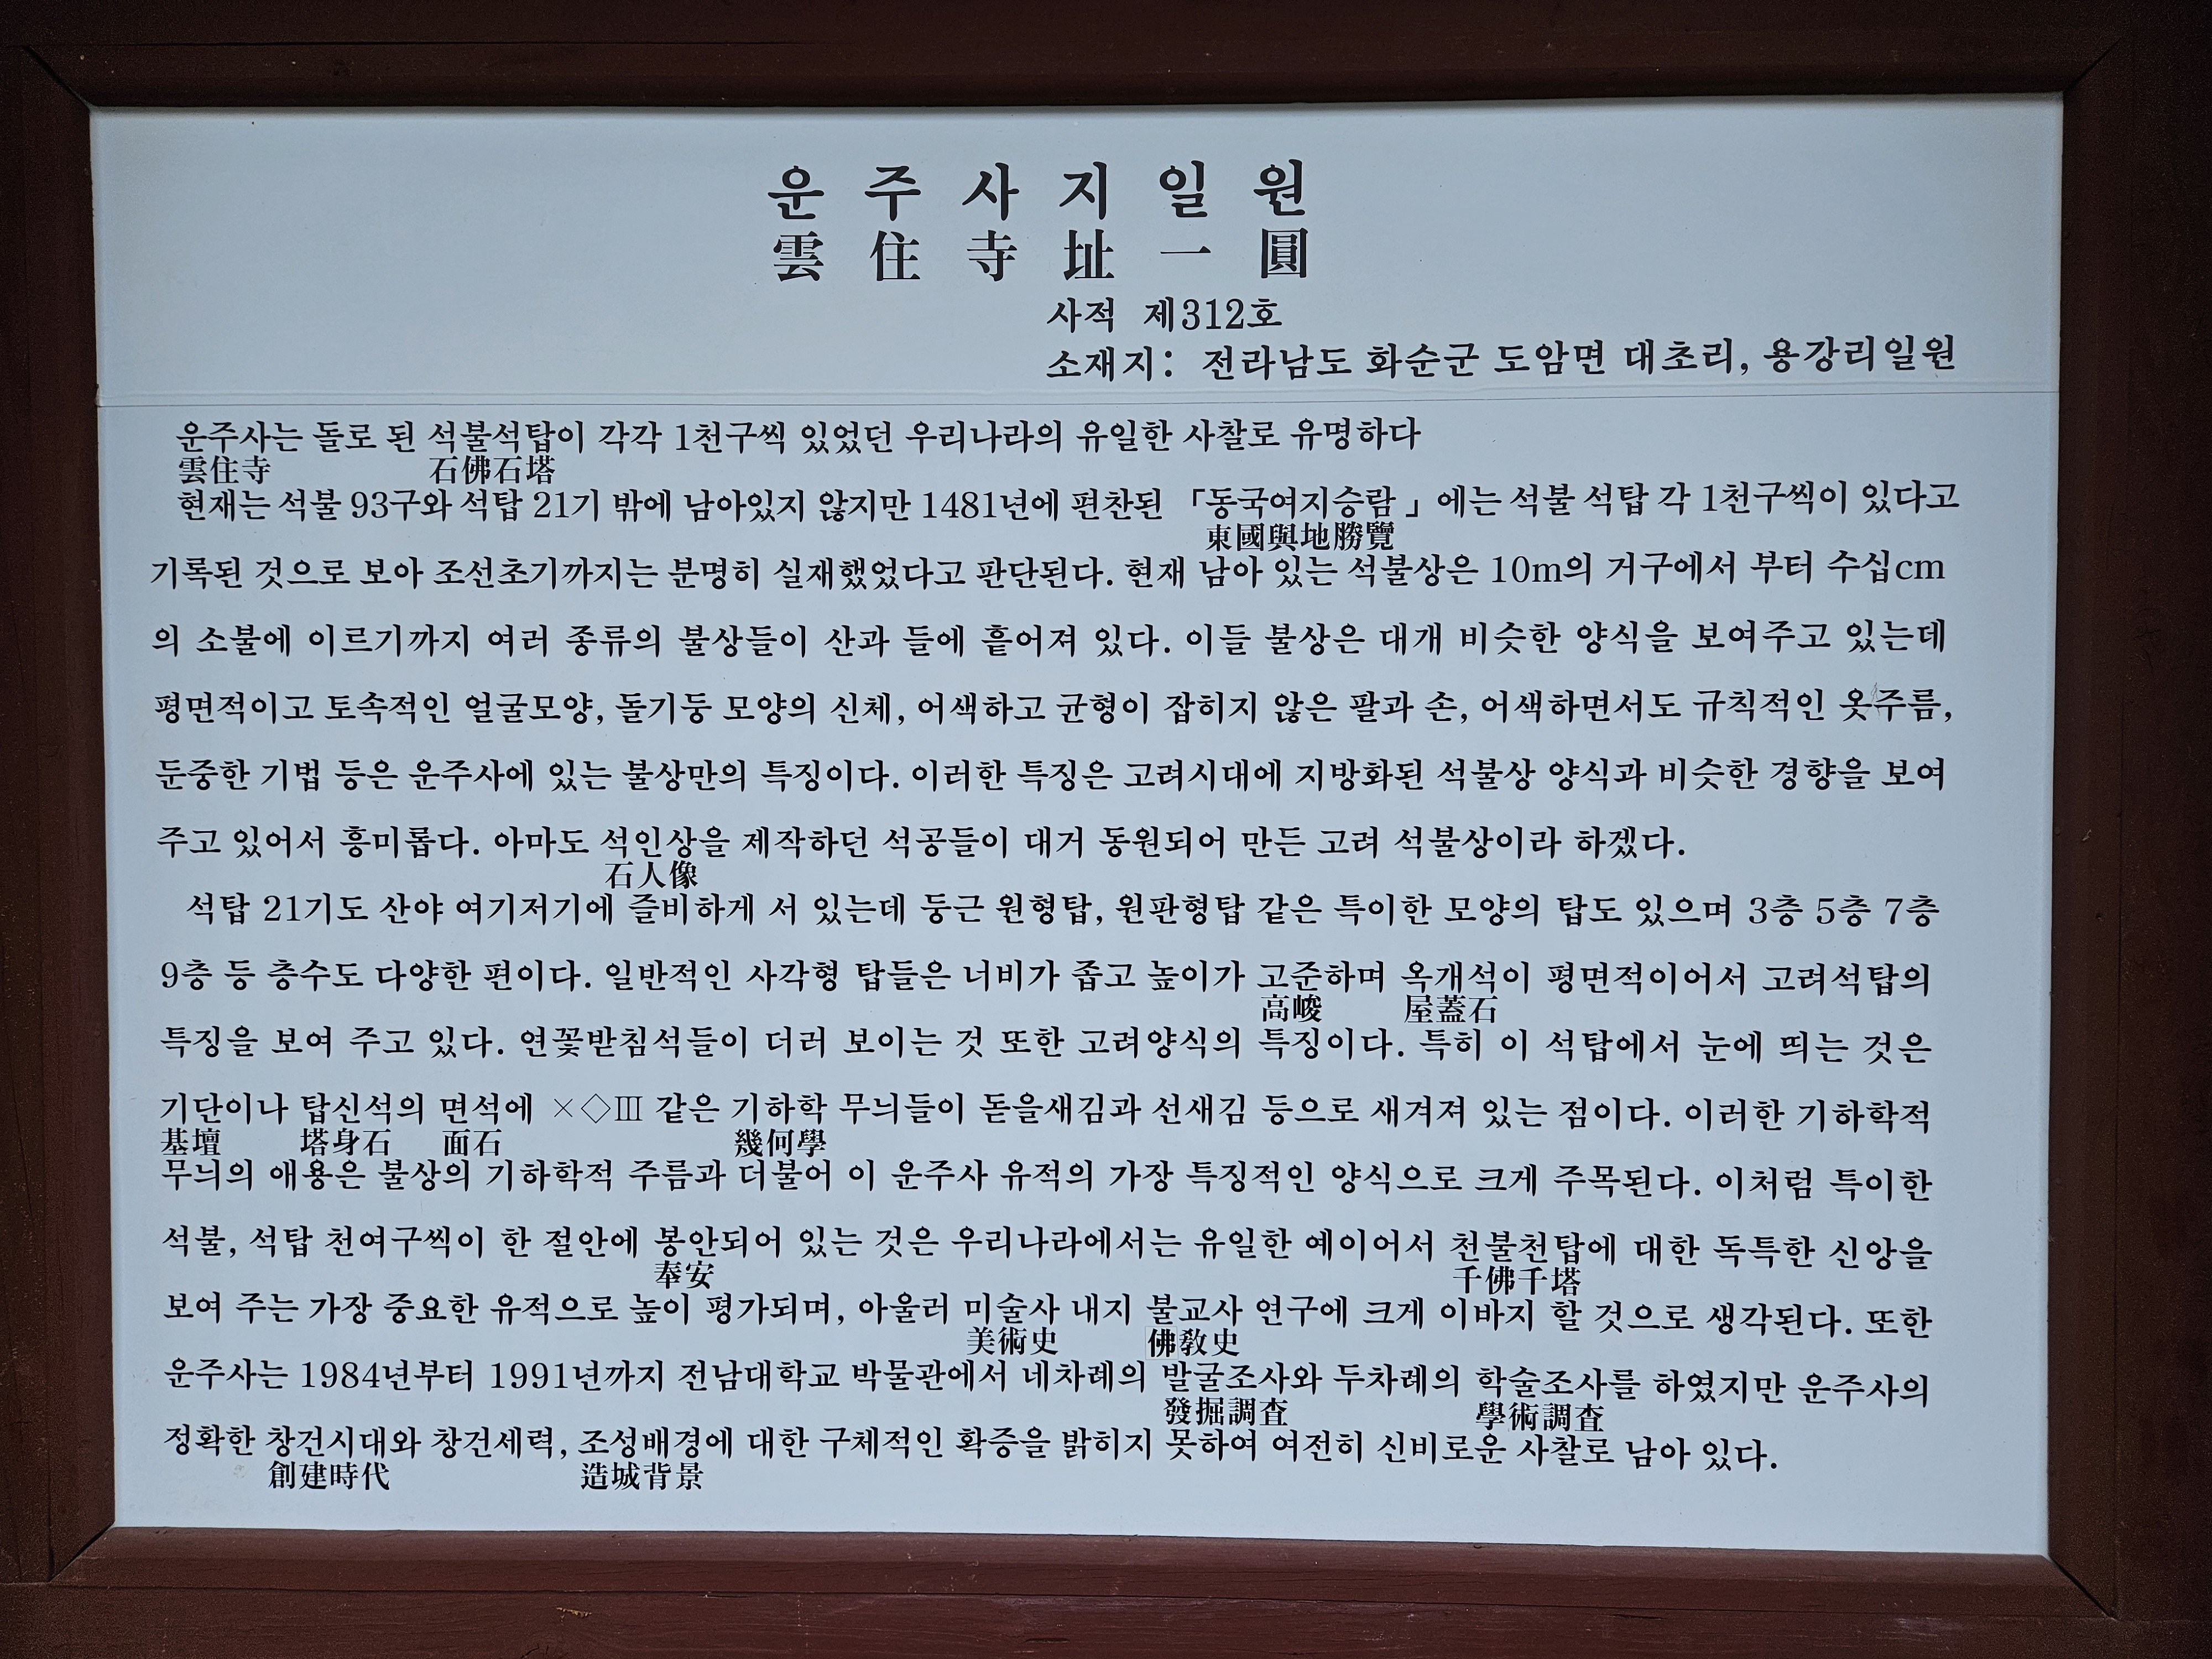 운주사지일원
雲住寺址一圓
사적 제312호
소재지: 전라남도 화순군 도암면 대초리, 용강리일원
운주사는 돌로 된 석불석탑이 각각 1천구씩 있었던 우리나라의 유일한 사찰로 유명하다
雲住寺 石佛石塔
현재는 석불 93구와 석탑 21기 밖에 남아있지 않지만 1481년에 편찬된 「동국여지승람」에는 석불 석탑 각 1천구씩이 있다고
東國與地勝覽
기록된 것으로 보아 조선초기까지는 분명히 실재했었다고 판단된다. 현재 남아 있는 석불상은 10m의 거구에서 부터 수십cm
의 소불에 이르기까지 여러 종류의 불상들이 산과 들에 흩어져 있다. 이들 불상은 대개 비슷한 양식을 보여주고 있는데
평면적이고 토속적인 얼굴모양, 돌기둥 모양의 신체, 어색하고 균형이 잡히지 않은 팔과 손, 어색하면서도 규칙적인 옷주름,
둔중한 기법 등은 운주사에 있는 불상만의 특징이다. 이러한 특징은 고려시대에 지방화된 석불상 양식과 비슷한 경향을 보여
주고 있어서 흥미롭다. 아마도 석인상을 제작하던 석공들이 대거 동원되어 만든 고려 석불상이라 하겠다.
石人像
석탑 21기도 산야 여기저기에 즐비하게 서 있는데 둥근 원형탑, 원판형탑 같은 특이한 모양의 탑도 있으며 3층 5층 7층
9층 등 층수도 다양한 편이다. 일반적인 사각형 탑들은 너비가 좁고 높이가 고준하며 옥개석이 평면적이어서 고려석탑의
高峻 屋蓋石
특징을 보여 주고 있다. 연꽃받침석들이 더러 보이는 것 또한 고려양식의 특징이다. 특히 이 석탑에서 눈에 띄는 것은
기단이나 탑신석의 면석에 ×◇Ⅲ 같은 기하학 무늬들이 돋을새김과 선새김 등으로 새겨져 있는 점이다. 이러한 기하학적
基壇 塔身石 面石 幾何學
무늬의 애용은 불상의 기하학적 주름과 더불어 이 운주사 유적의 가장 특징적인 양식으로 크게 주목된다. 이처럼 특이한
석불, 석탑 천여구씩이 한 절안에 봉안되어 있는 것은 우리나라에서는 유일한 예이어서 천불천탑에 대한 독특한 신앙을
奉安 千佛千塔
보여 주는 가장 중요한 유적으로 높이 평가되며, 아울러 미술사 내지 불교사 연구에 크게 이바지 할 것으로 생각된다. 또한
美術史 佛敎史
운주사는 1984년부터 1991년까지 전남대학교 박물관에서 네차례의 발굴조사와 두차례의 학술조사를 하였지만 운주사의
發掘調査 學術調査
정확한 창건시대와 창건세력, 조성배경에 대한 구체적인 확증을 밝히지 못하여 여전히 신비로운 사찰로 남아 있다.
創建時代 造城背景